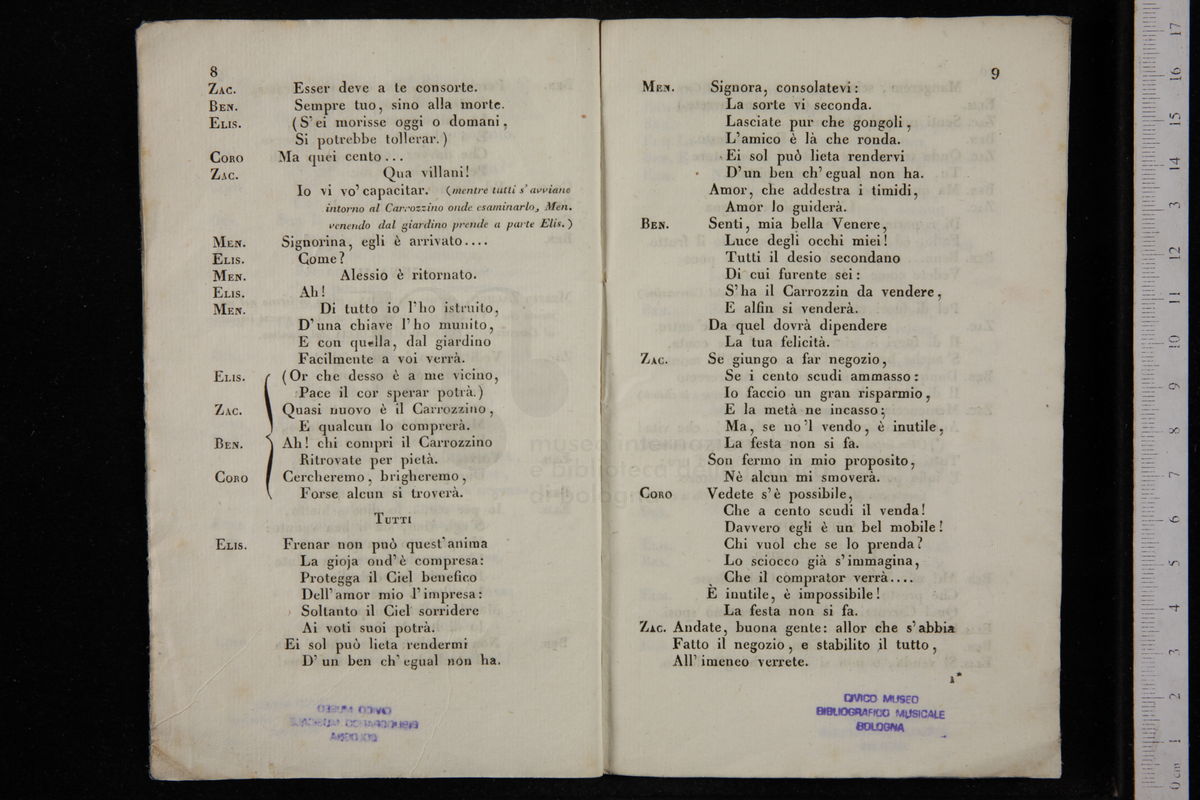 8
Zac. Esser deve a te consorte.
Ben. Sempre tuo, sino alla morte.
Elis. (S'ei morisse oggi o domani,
Si potrebbe tollerar.)
Coro Ma quei cento...
Zac. Qua villani!
Io vi vo' capacitar. (mentre tutti s'avviano
intorno al Carrozzino onde esaminarlo, Men.
venendo dal giardino prende a parte Elis.)
Men. Signorina, egli è arrivato....
Elis. Come?
Men. Alessio è ritornato.
Elis. Ah!
Men. Di tutto io l'ho istruito,
D'una chiave l'ho munito,
E con quella, dal giardino
Facilmente a voi verrà.
Elis. (Or che desso è a me vicino,
Pace il cor sperar potrà.)
Zac. Quasi nuovo è il Carrozzino,
E qualcun lo comprerà.
Ben. Ah! chi compri il Carrozzino
Ritrovate per pietà.
Coro Cercheremo, brigheremo,
Forse alcun si troverà.
Tutti
Elis. Frenar non può quest'anima
La gioja ond'è compresa:
Protegga il Ciel benefico
Dell'amor mio l'impresa:
Soltanto il Ciel sorridere
Ai voti suoi potrà.
Ei sol può lieta rendermi
D'un ben ch'egual non ha.
9
Men. Signora, consolatevi:
La sorte vi seconda.
Lasciate pur che gongoli,
L'amico è là che ronda.
Ei sol può lieta rendervi
D'un ben ch'egual non ha.
Amor, che addestra i timidi,
Amor lo guiderà.
Ben. Senti, mia bella Venere,
Luce degli occhi miei!
Tutti il desio secondano
Di cui furente sei:
S'ha il Carrozzin da vendere,
E alfin si venderà.
Da quel dovrà dipendere
La tua felicità.
Zac. Se giungo a far negozio,
Se i cento scudi ammasso:
Io faccio un gran risparmio,
E la metà ne incasso;
Ma, se no'l vendo, è inutile,
La festa non si fa.
Son fermo in mio proposito,
Nè alcun mi smoverà.
Coro Vedete s'è possibile,
Che a cento scudi il venda!
Davvero egli è un bel mobile!
Chi vuol che se lo prenda?
Lo sciocco già s'immagina,
Che il comprator verrà....
È inutile, è impossibile!
La festa non si fa.
Zac. Andate, buona gente: allor che s'abbia
Fatto il negozio, e stabilito il tutto,
All'imeneo verrete.
1*
CIVICO MUSEO
BIBLIOGRAFICO MUSICALE
BOLOGNA
museo internaz
e biblioteca della
di bologna
0 cm 1 2 3 4 5 6 7 8 9 10 11 12 13 14 15 16 17